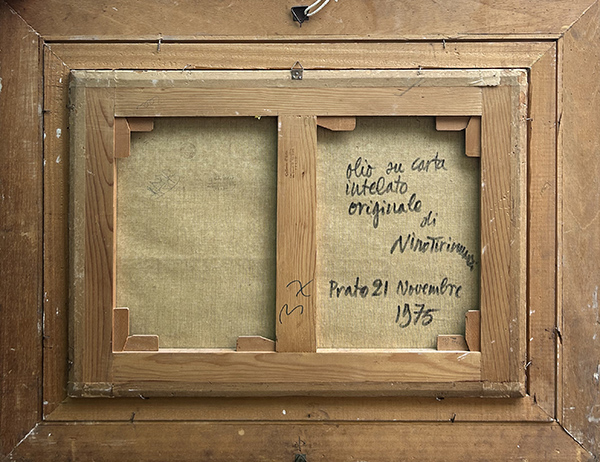 olio su carta
intelato
originale
di
Nino Tirinnanzi
Prato 21 Novembre
1975